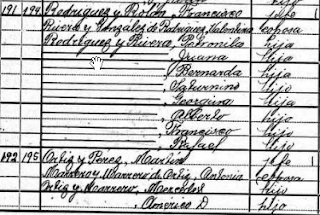 191 194 Rodríguez y Rolón, Francisco jefe 1
Rivera y González de Rodríguez, Valentina esposa
Rodríguez y Rivera, Petronila hija
Juana hija
Bernarda hija
Saturnino hijo
Georgina hija
Alberto hijo
Francisco hijo
Rafael hijo
192 195 Ortiz y Perez, Martin jefe 1
Marrero y Marrero de Ortiz, Antonia esposa
Ortiz y Marrero, hijo
Américo D hijo